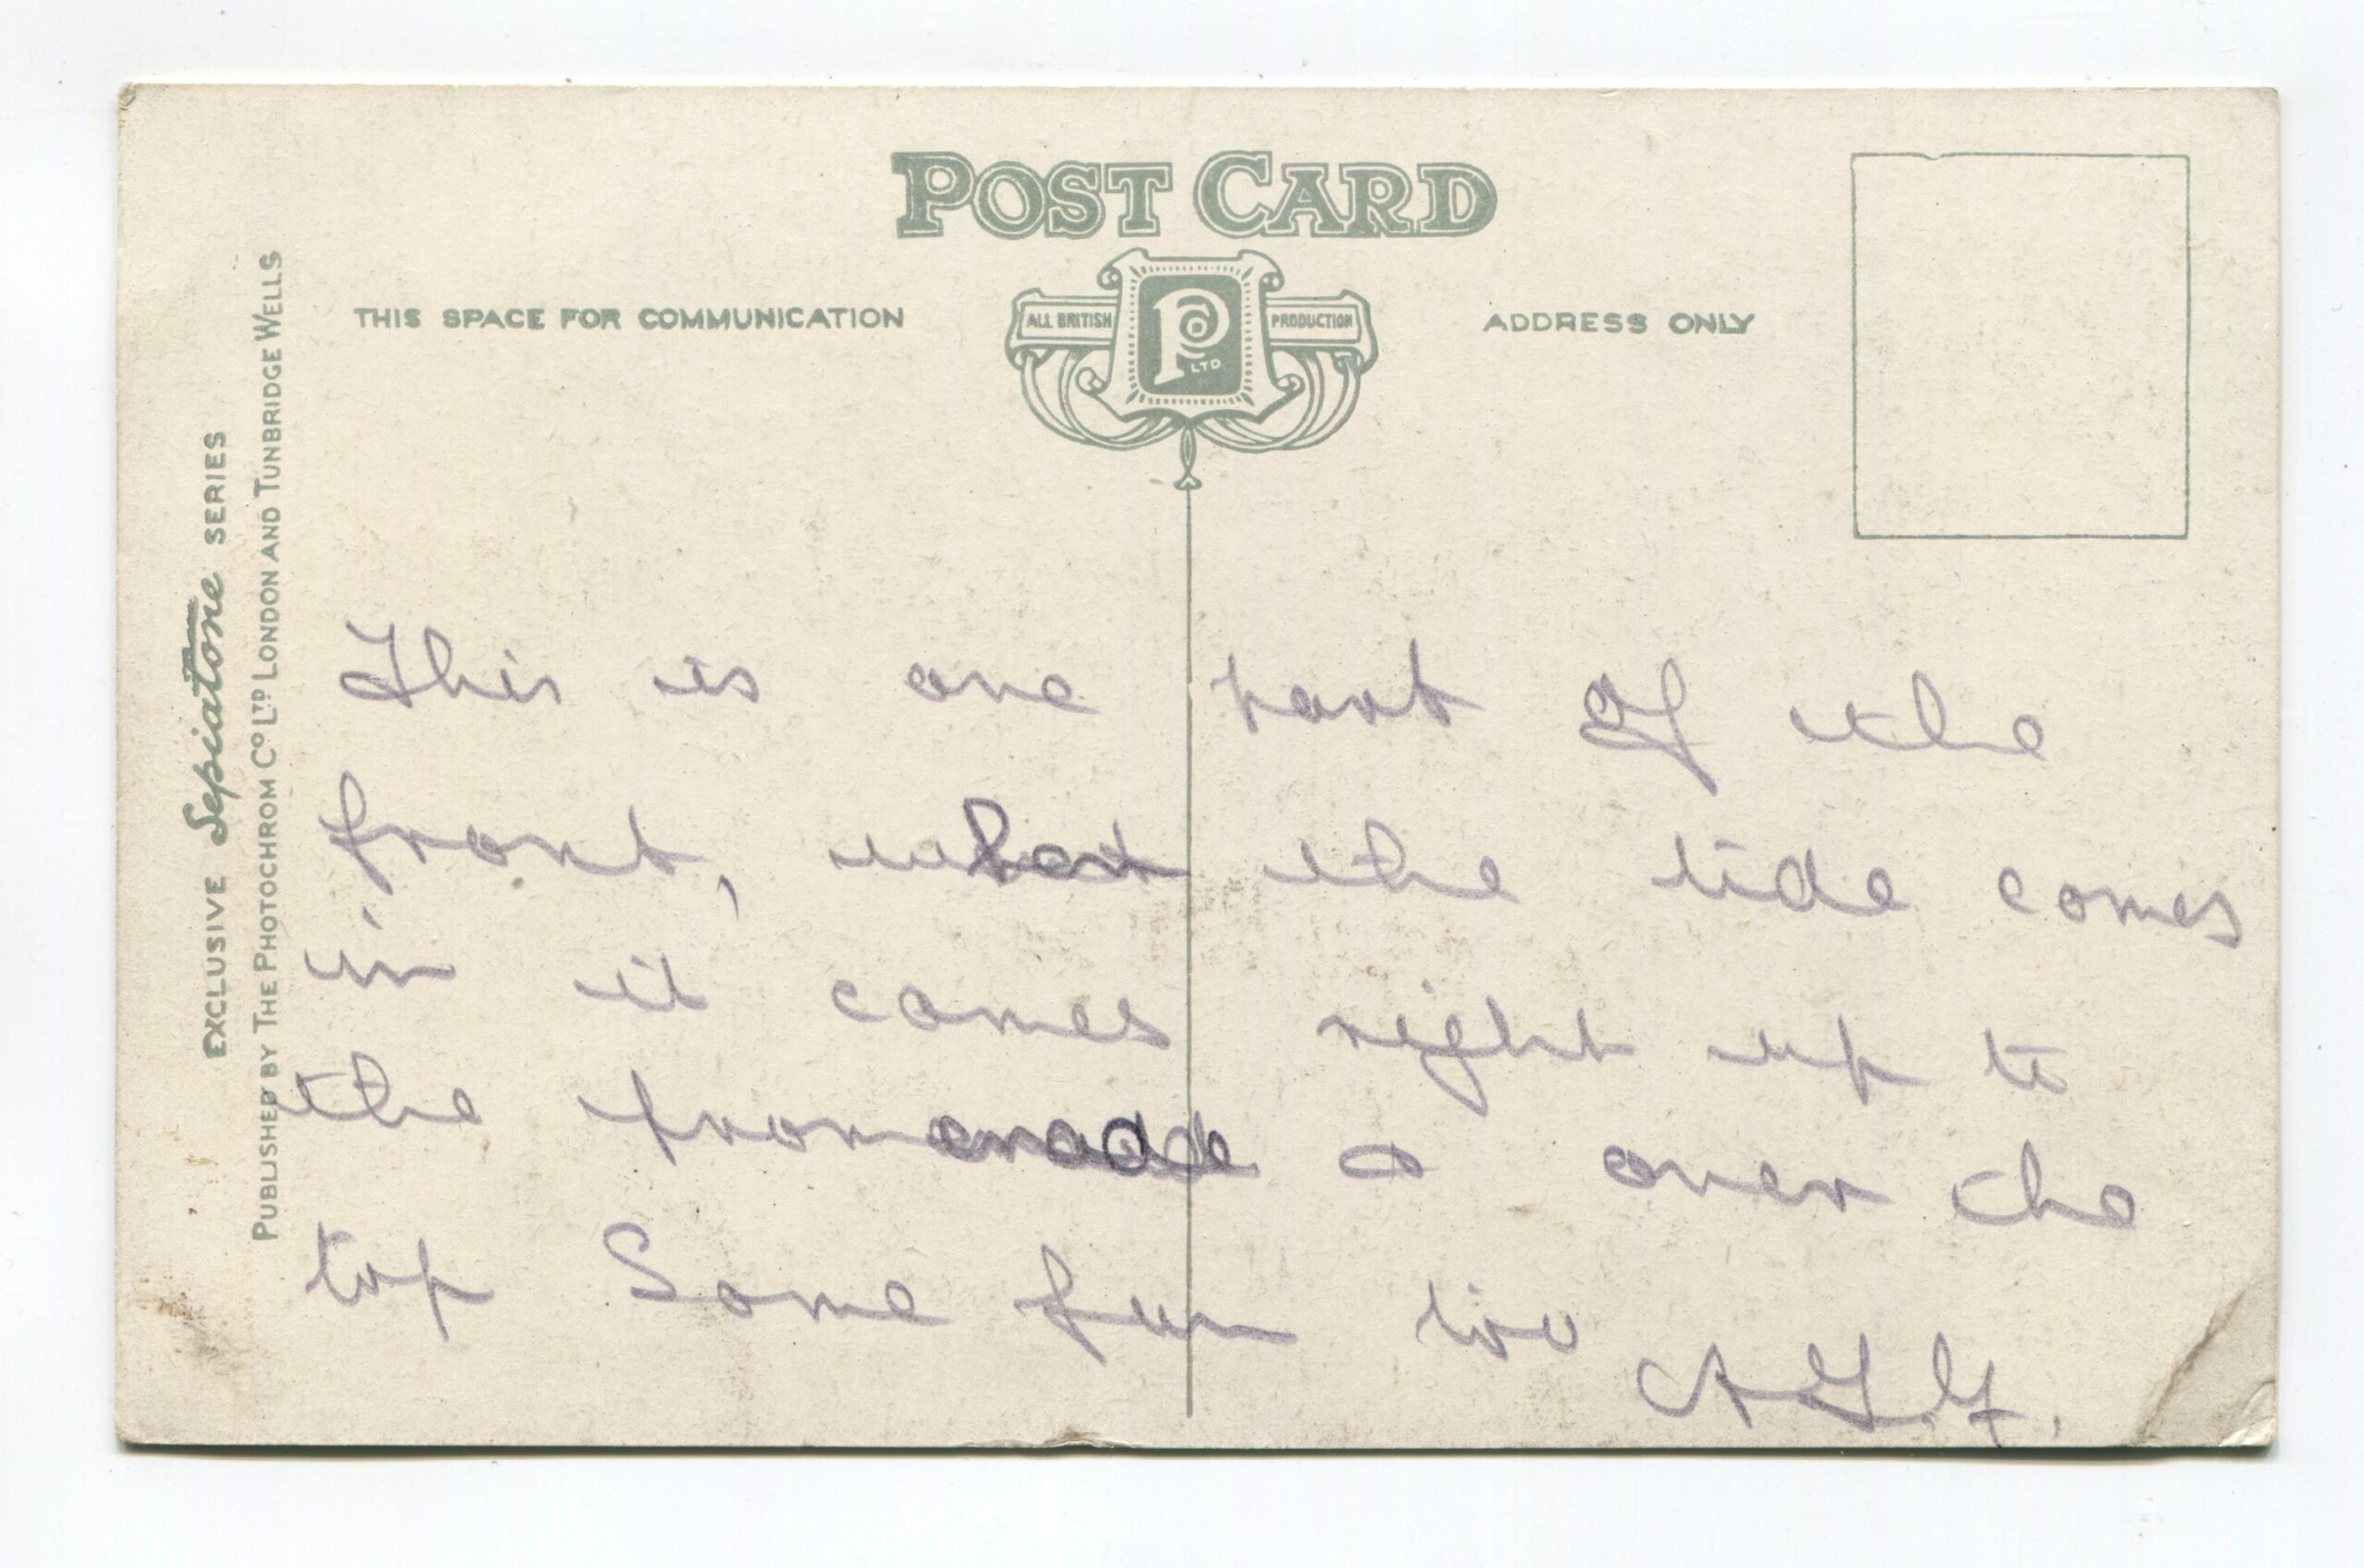 POST CARD
THIS SPACE FOR COMMUNICATION
ALL BRITISH
P
LTD
PRODUCTION
ADDRESS ONLY
EXCLUSIVE Sepiatone SERIES
PUBLISHED BY THE PHOTOCHROM CO LTD LONDON AND TUNBRIDGE WELLS
This is one part of the
front, when the tide comes
in it comes right up to
the promenade & over the
top Some fun too